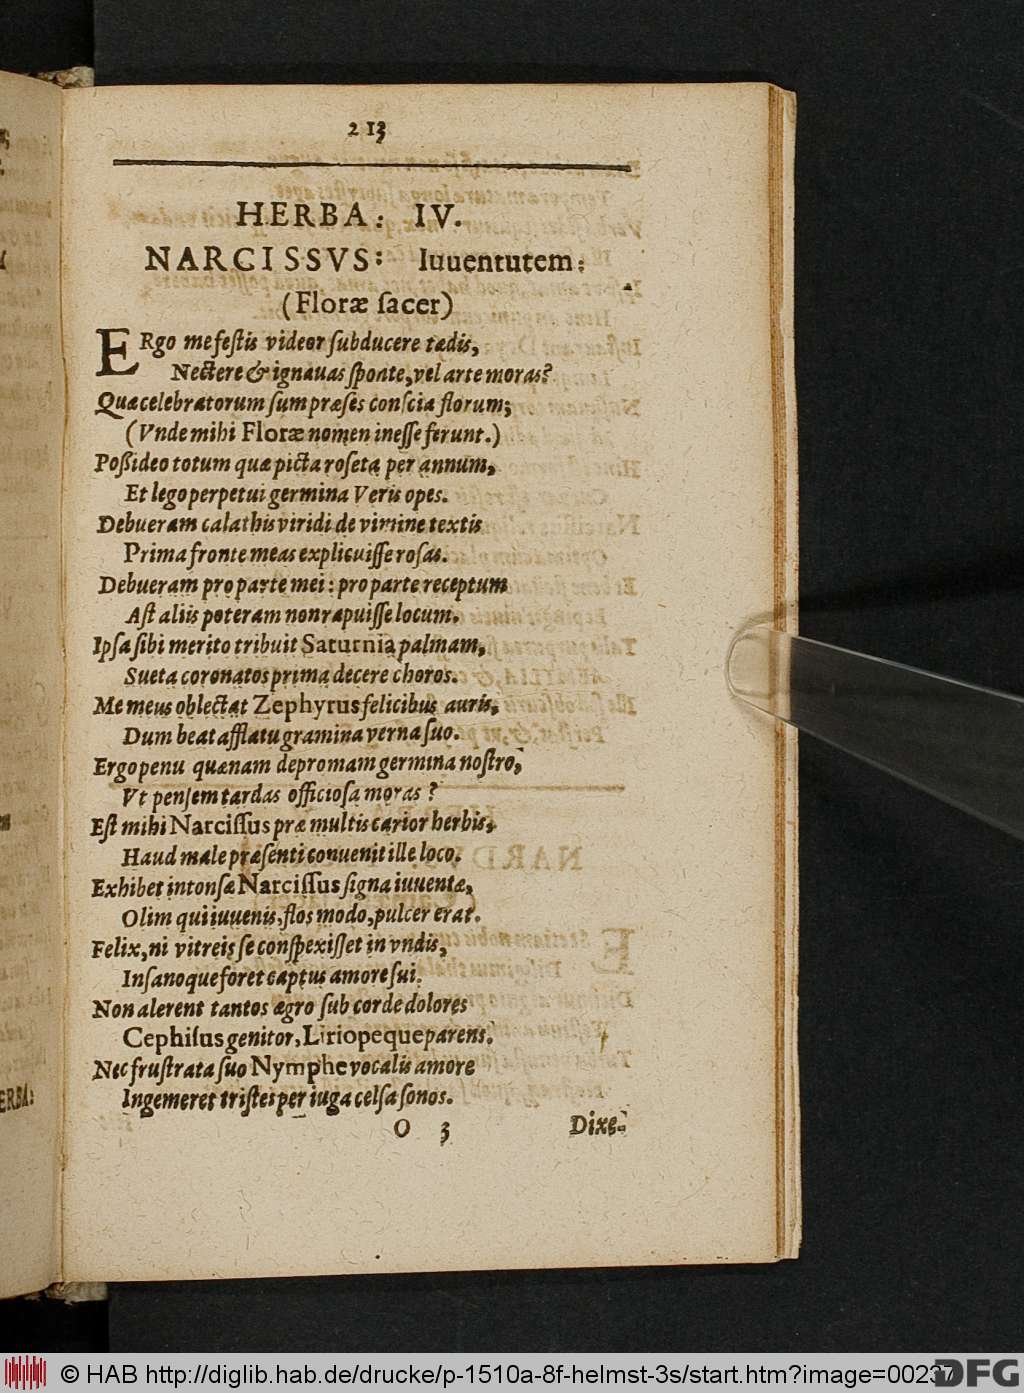 213
HERBA: IV.
NARCISSVS: Iuuentutem:
(Floræ ſacer)
ERgo me feſtis videor ſubducere tædis,
Nectere & ignauas ſponte, vel arte moras?
Quæ celebratorum ſum præſes conſcia florum;
(Vnde mihi Floræ nomen ineſſe ferunt.)
Poßideo totum quæ picta roſeta per annum,
Et lego perpetui germina Veris opes.
Debueram calathis viridi de vimine textis
Prima fronte meas explicuiſſe roſas.
Debueram pro parte mei: pro parte receptum
Aſt aliis poteram non rapuiſſe locum.
Ipſa ſibi merito tribuit Saturnia palmam,
Sueta coronatos prima decere choros.
Me meus oblectat Zephyrus felicibus auris,
Dum beat afflatu gramina verna ſuo.
Ergo penu quænam depromam germina noſtro,
Vt penſem tardas officioſa moras?
Eſt mihi Narciſſus præ multis carior herbis,
Haud male præſenti conuenit ille loco.
Exhibet intonſæ Narciſſus ſigna iuuentæ,
Olim qui iuuenis, flos modo, pulcer erat.
Felix, ni vitreis ſe conſpexiſſet in vndis,
Inſanoque foret captus amore ſui.
Non alerent tantos ægro ſub corde dolores
Cephiſus genitor, Liriopeque parens.
Nec fruſtrata ſuo Nymphe vocalis amore
Ingemeret triſtes per iuga celſa ſonos.
O 3 Dixe-
ERBA:
© HAB http://diglib.hab.de/drucke/p-1510a-8f-helmst-3s/start.htm?image=00237
DFG